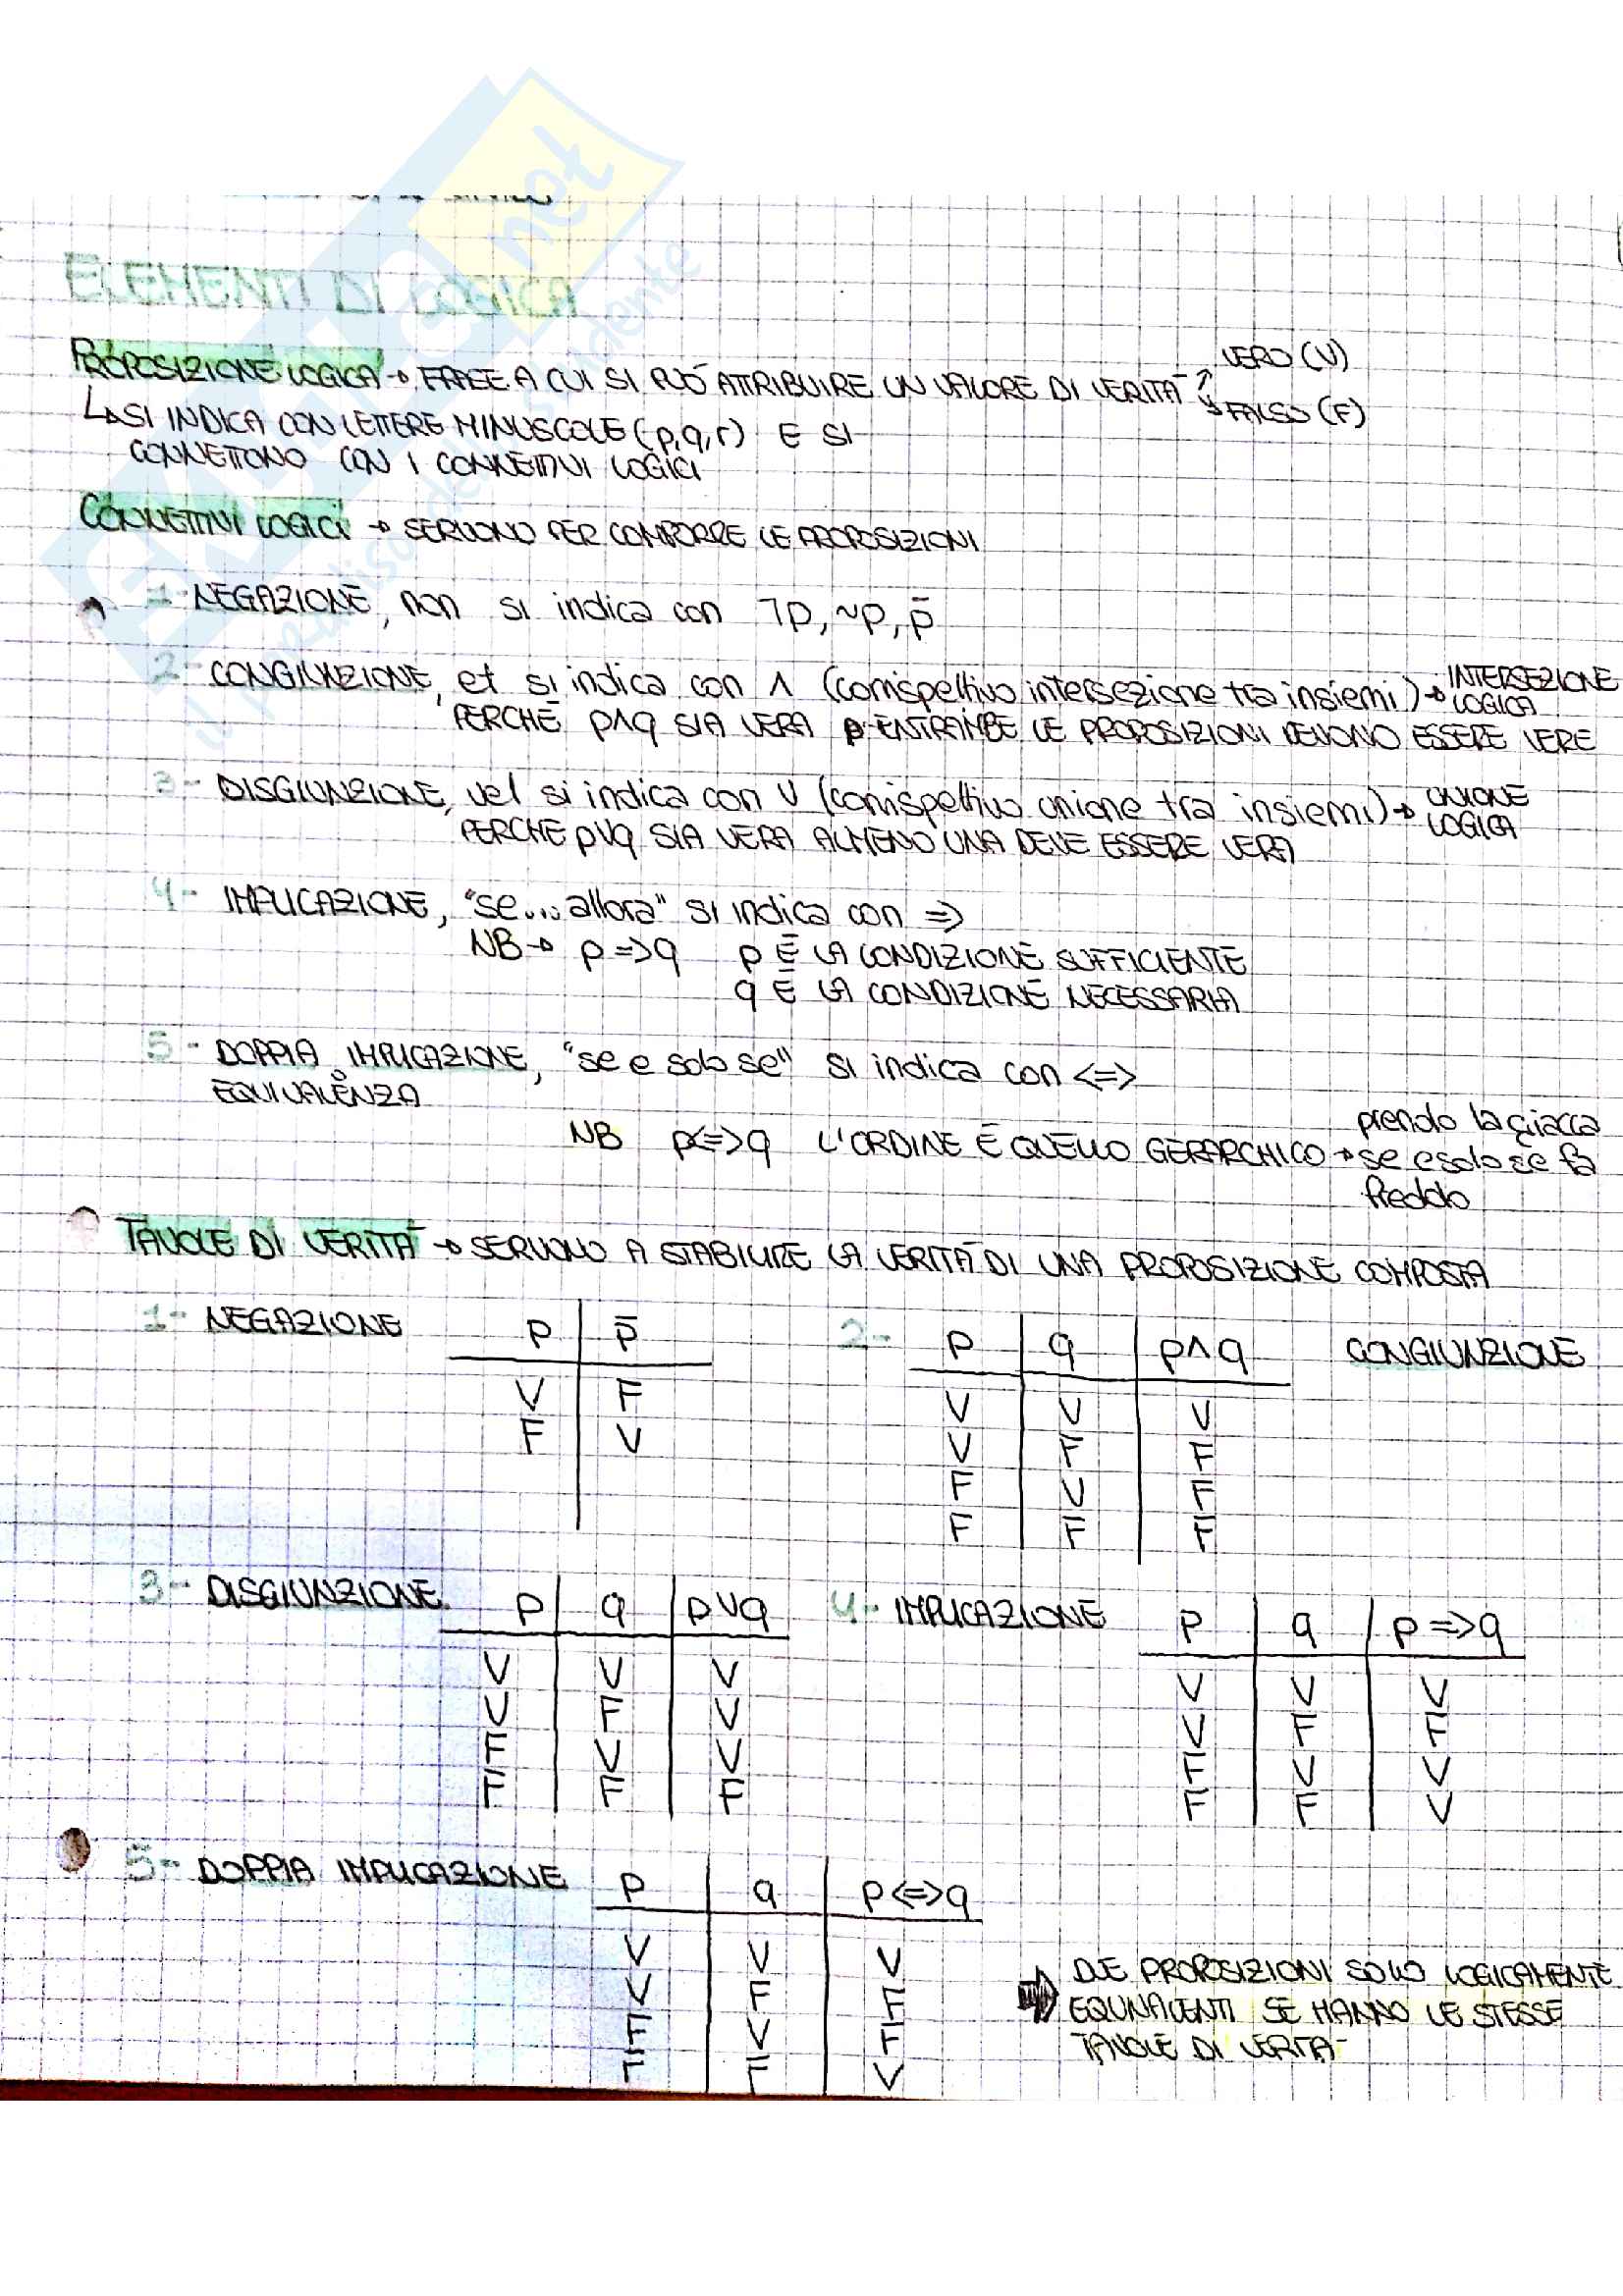 ELEMENTI DI LOGICA
PROPOSIZIONE LOGICA → FRASE A CUI SI PUÒ ATTRIBUIRE UN VALORE DI VERITÀ
VERO (V)
FALSO (F)
SI INDICA CON LETTERE MINUSCOLE (p,q,r) E SI
CONNETTONO CON I CONNETTIVI LOGICI
CONNETTIVI LOGICI → SERVONO PER COMPORRE LE PROPOSIZIONI
1- NEGAZIONE, non si indica con ¬p, ~p, p̄
2- CONGIUNZIONE, et si indica con ∧ (corrispettivo intersezione tra insiemi) → INTERSEZIONE
LOGICA
PERCHÈ p∧q SIA VERA ENTRAMBE LE PROPOSIZIONI DEVONO ESSERE VERE
3- DISGIUNZIONE, vel si indica con ∨ (corrispettivo unione tra insiemi) → UNIONE
LOGICA
PERCHÈ p∨q SIA VERA ALMENO UNA DEVE ESSERE VERA
4- IMPLICAZIONE, "se... allora" si indica con =>
NB → p => q p È LA CONDIZIONE SUFFICIENTE
q È LA CONDIZIONE NECESSARIA
5- DOPPIA IMPLICAZIONE, "se e solo se" si indica con <=>
o
EQUIVALENZA
NB p<=>q L'ORDINE È QUELLO GERARCHICO → prendo la giacca
se e solo se fa
freddo
TAVOLE DI VERITÀ → SERVONO A STABILIRE LA VERITÀ DI UNA PROPOSIZIONE COMPOSTA
1- NEGAZIONE
p p̄
V F
F V
2- CONGIUNZIONE
p q p∧q
V V V
V F F
F V F
F F F
3- DISGIUNZIONE
p q p∨q
V V V
V F V
F V V
F F F
4- IMPLICAZIONE
p q p=>q
V V V
V F F
F V V
F F V
5- DOPPIA IMPLICAZIONE
p q p<=>q
V V V
V F F
F V F
F F V
DUE PROPOSIZIONI SONO LOGICAMENTE
EQUIVALENTI SE HANNO LE STESSE
TAVOLE DI VERITÀ